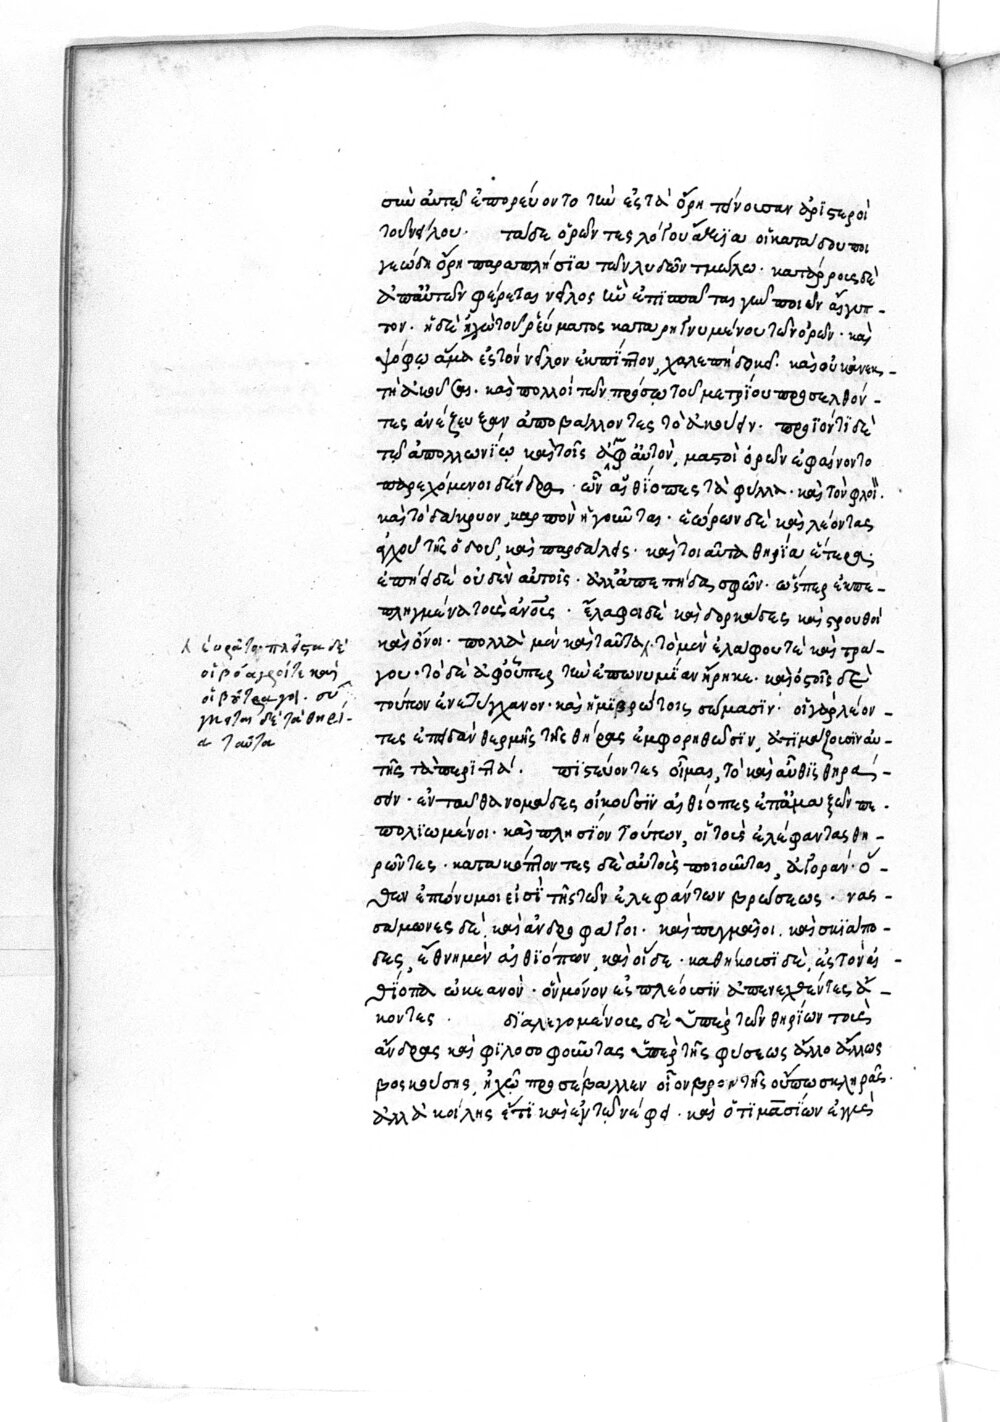 σὺν αὐτῷ ἐπορεύοντο τὴν ἐς τὰ ὄρη τείνουσαν ἀρϊστεροὶ
τοῦ νείλου. τάδε ὁρῶντες λόγου ἄξϊα οἱ κατάδουποι
γεώδη ὄρη παραπλήσϊα τῶν λυδῶν τμώλω. κατάρρους δὲ
ἀπ' αὐτῶν φέρεται νεῖλος ἣν ἐπϊσπᾶται γῆν ποιῶν αἴγυπ-
τον. ἡ δὲ ἠχὼ τοῦ ῥεύματος καταρηγνυμένου τῶν ὀρῶν. καὶ
ψόφῳ ἅμα ἐς τὸν νεῖλον ἐκπῖπτον, χαλεπὴ δοκεῖ. καὶ οὐκ ἀνεκ-
τὴ ἀκοῦσαι. καὶ πολλοὶ τῶν πρόσω τοῦ μετρίου προσελθόν-
τες ἀνέζευξαν ἀποβαλλοντες τὸ ἀκούειν. προϊόντϊ δὲ
τῷ ἀπολλωνϊῳ καὶ τοῖς ἀμφ' αὐτὸν, μαστοὶ ὀρῶν ἐφαίνοντο
παρεχόμενοι δένδρα. ὧν αἰθϊοπες τὰ φύλλα. καὶ τὸν φλοιὸν.
καὶ τὸ δάκρυον, καρπὸν ἡγοῦνται. ἑώρων δὲ καὶ λέοντας
ἀγχοῦ τῆς ὁδοῦ, καὶ παρδάλεις. καὶ τοιαῦτα θηρϊα ἕτερα.
ἐπήει δὲ οὐδὲν αὐτοῖς. ἀλλ' ἀπεπήδα σφῶν. ὥσπερ ἐκπε-
πληγμένα τοὺς ἀνους. ἔλαφοι δὲ καὶ δορκάδες καὶ στρουθοὶ
καὶ ὄνοι. πολλὰ μὲν καὶ ταῦτα. τὸ μὲν ἐλάφου τὲ καὶ τρά-
γου. τὸ δὲ ἀφ' οὗπερ τὴν ἐπωνυμϊαν ἥρηκε. καὶ ὀστοῖς δὲ
τούτων ἐνετύγχανον. καὶ ἡμϊβρώτοις σώμασϊν. οἱ γὰρ λέον-
τες ἐπειδὰν θερμῆς τῆς θήρας ἐμφορηθῶσϊν, ἀτϊμάζουσιν αὐ-
τῆς τὰ περϊττά. πϊστεύοντες οἶμαι, τὸ καὶ αὖθϊς θηρά-
σειν. ἐνταῦθα νομάδες οἰκοῦσϊν αἰθϊοπες ἐπ' ἁμαξῶν πε-
πολϊσμένοι. καὶ πλησϊον τούτων, οἱ τοὺς ἐλέφαντας θη-
ρῶντες. κατακόπτοντες δὲ αὐτοὺς ποιοῦνται, ἀγοράν. ὅ-
θεν ἐπώνυμοι εἰσϊ τῆς τῶν ἐλεφάντων βρώσεως. νασ-
σάμωνες δὲ, καὶ ἀνδροφάγοι. καὶ πυγμαῖοι. καὶ σκϊάπο-
δες, ἔθνη μὲν αἰθϊόπων, καὶ οἵδε. καθήκουσϊ δὲ, ἐς τὸν αἰ-
θϊοπα ὠκεανὸν. ὃν μόνον ἐσπλέουσϊν ἀπενεχθέντες ἄ-
κοντες. δϊαλεγομένους δὲ ὑπὲρ τῶν θηρίων τοὺς
ἄνδρας καὶ φϊλοσοφοῦντας ὑπὲρ τῆς φύσεως ἄλλο ἄλλως
βοσκούσης, ἠχὼ προσέβαλλεν οἷον βροντῆς οὔπω σκληρᾶς.
ἀλλὰ κοίλης ἔτϊ καὶ ἐν τῷ νέφει. καὶ ὁ τϊμασϊων ἐγγὺς
ἑωρᾶτο. πλεῖστα δὲ
οἱ βόαγροί τε καὶ
οἱ βούτραγοι. σύγ
κειται δὲ τὰ θηρί-
α ταῦτα